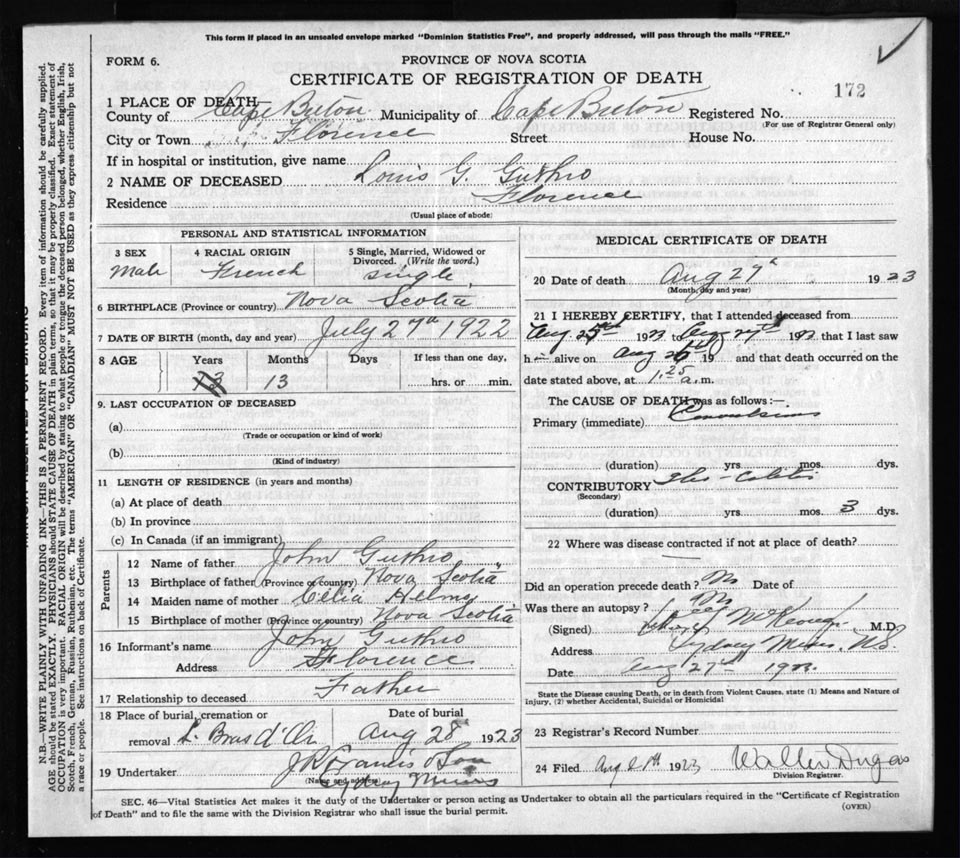 This form if placed in an unsealed envelope marked "Dominion Statistics Free", and properly addressed, will pass through the mails "FREE."
FORM 6.
PROVINCE OF NOVA SCOTIA
CERTIFICATE OF REGISTRATION OF DEATH
172
1 PLACE OF DEATH—
County of Cape Breton Municipality of Cape Breton Registered No.
(For use of Registrar General only)
City or Town Florence Street House No.
If in hospital or institution, give name
2 NAME OF DECEASED Louis G. Guthro
Residence Florence
(Usual place of abode)
PERSONAL AND STATISTICAL INFORMATION
3 SEX 4 RACIAL ORIGIN 5 Single, Married, Widowed or Divorced. (Write the word.)
Male French single
6 BIRTHPLACE (Province or country) Nova Scotia
7 DATE OF BIRTH (month, day and year) July 27th 1922
8 AGE Years Months Days If less than one day,
13 13 hrs. or min.
9. LAST OCCUPATION OF DECEASED
(a)
(Trade or occupation or kind of work)
(b)
(Kind of industry)
11 LENGTH OF RESIDENCE (in years and months)
(a) At place of death
(b) In province
(c) In Canada (if an immigrant)
Parents
12 Name of father John Guthro
13 Birthplace of father (Province or country) Nova Scotia
14 Maiden name of mother Celia Helms
15 Birthplace of mother (Province or country) Nova Scotia
16 Informant's name John Guthro
Address Florence
17 Relationship to deceased Father
18 Place of burial, cremation or Date of burial
removal L. Bras d'Or Aug 28 1923
19 Undertaker J R Francis & Son
(Name and address)
Sydney Mines
MEDICAL CERTIFICATE OF DEATH
20 Date of death Aug 27th 1923
(Month, day and year)
21 I HEREBY CERTIFY, that I attended deceased from
Aug 25th 1923 to Aug 27th 1923 that I last saw
h alive on Aug 26th 19 and that death occurred on the
date stated above, at 1.25 a.m.
The CAUSE OF DEATH was as follows:—
Primary (immediate) Convulsions
(duration) yrs. mos. dys.
CONTRIBUTORY Ileo-Colitis
(Secondary)
(duration) yrs. mos. 3 dys.
22 Where was disease contracted if not at place of death?
Did an operation precede death? No Date of
Was there an autopsy? No
(Signed) McKeough M.D.
Address Sydney Mines, N.S.
Date Aug 27th 1923.
State the Disease causing Death, or in death from Violent Causes, state (1) Means and Nature of Injury, (2) whether Accidental, Suicidal or Homicidal
23 Registrar's Record Number
24 Filed Aug 1923 Walter Dugas
Division Registrar.
SEC. 46—Vital Statistics Act makes it the duty of the Undertaker or person acting as Undertaker to obtain all the particulars required in the "Certificate of Registration
of Death" and to file the same with the Division Registrar who shall issue the burial permit.
(OVER)
N.B.—WRITE PLAINLY WITH UNFADING INK—THIS IS A PERMANENT RECORD. Every item of information should be carefully supplied.
AGE should be stated EXACTLY. PHYSICIANS should STATE CAUSE OF DEATH in plain terms, so that it may be properly classified. Exact statement of
OCCUPATION is very important. RACIAL ORIGIN will be described by stating to what people or tongue the deceased person belonged, whether English, Irish,
Scotch, French, German, Russian, Ruthenian, etc. The terms "AMERICAN" OR "CANADIAN" MUST NOT BE USED as they express citizenship but not
a race or people. See instructions on back of Certificate.